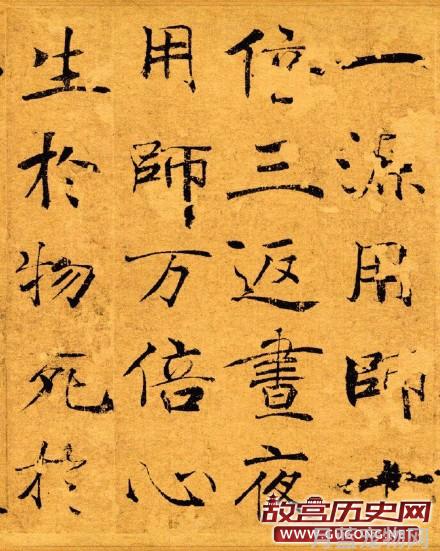 一源用師十
倍三返晝夜
用師万倍心
生於物死於
故宫历史网
WWW.GUGONG.NET